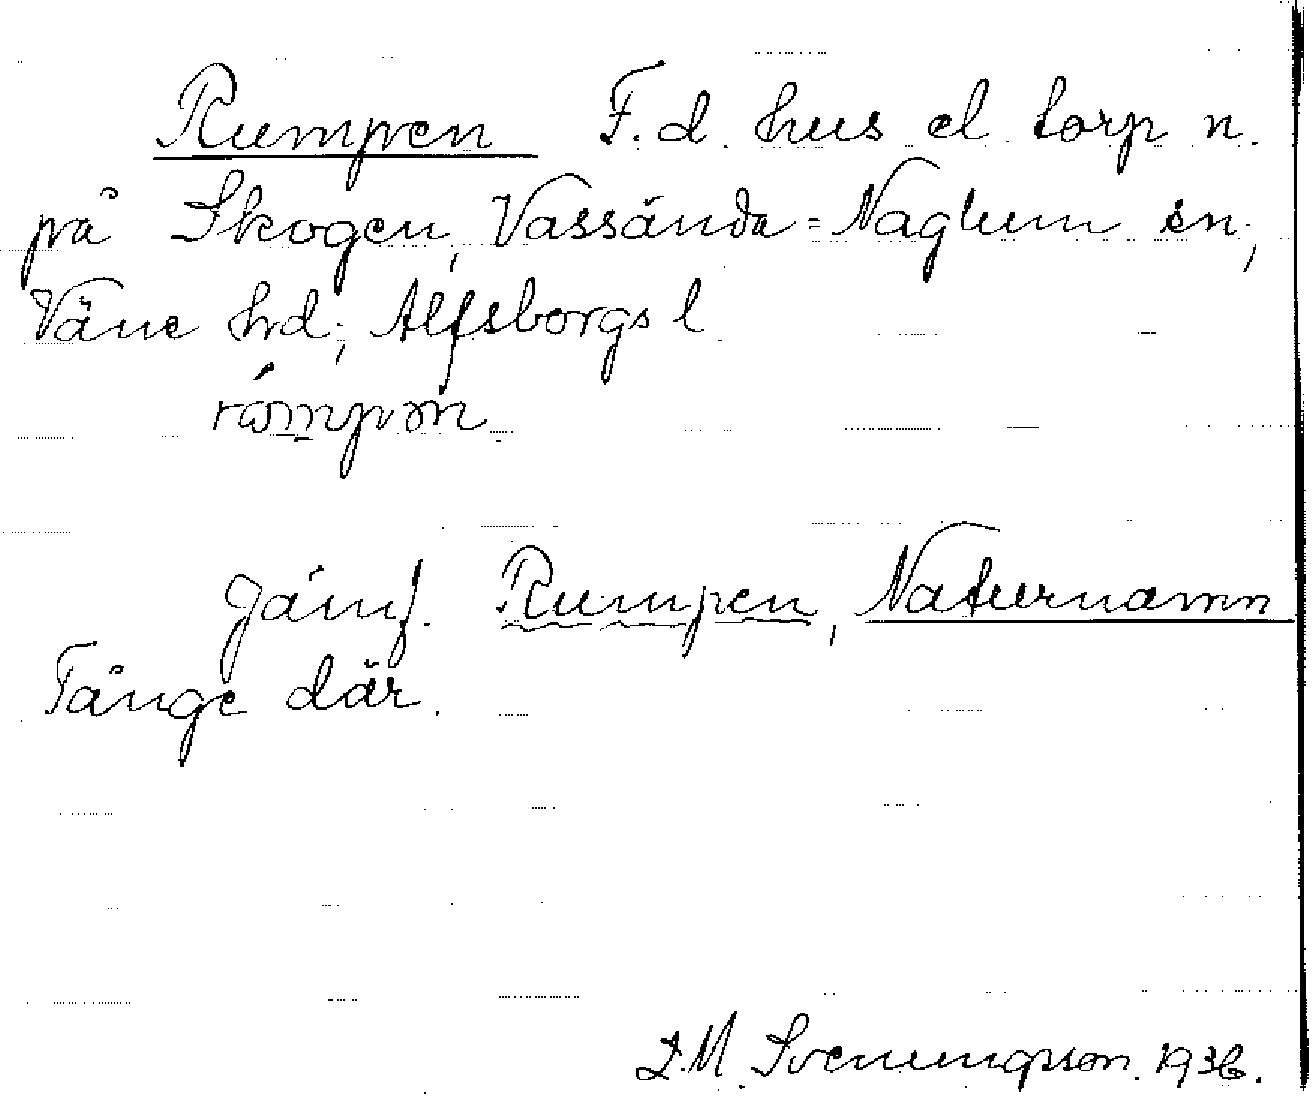 Rumpen F. d. hus el torp n.
på Skogen, Vassända-Naglum sn;
Väne hd; Älfsborgs l
Jämf. Rumpen, Naturnamn
Tånge där.
Svenungsson. 1936.